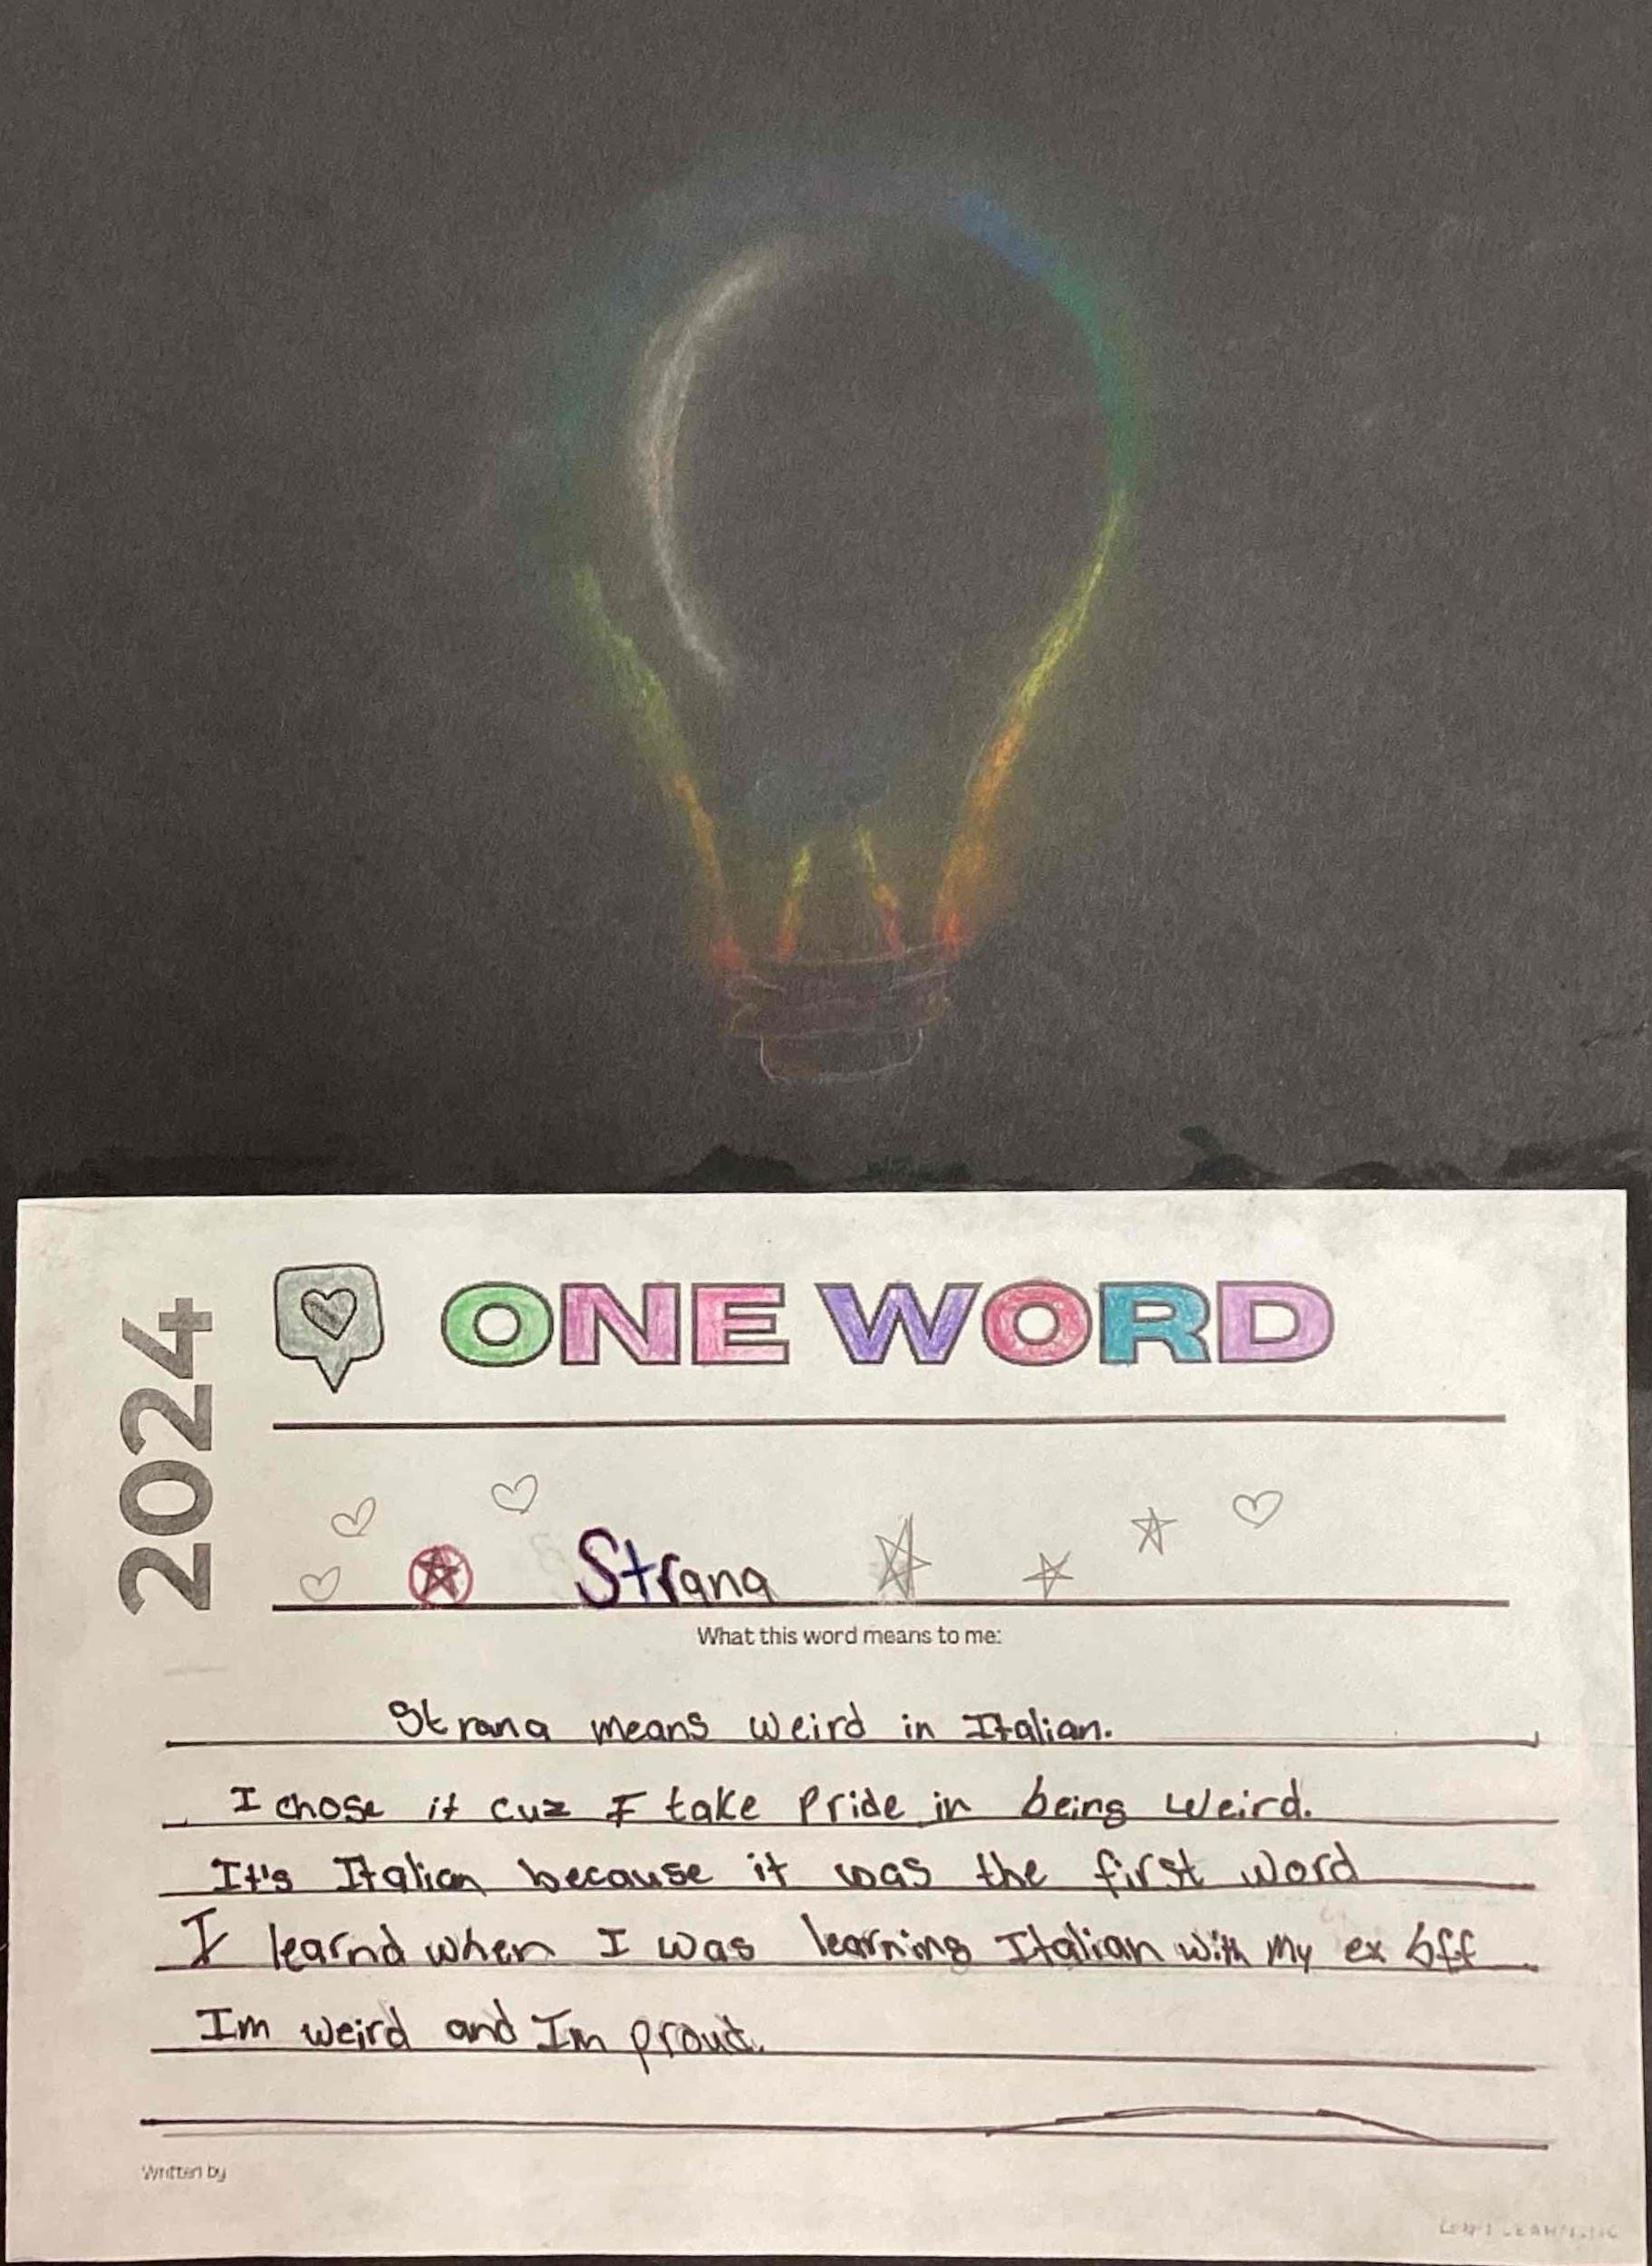 2024
ONE WORD
Strana
What this word means to me:
Strana means weird in Italian.
I chose it cuz I take pride in being weird.
It's Italian because it was the first word
I learnd when I was learning Italian with my ex bff
Im weird and Im proud.
Written by